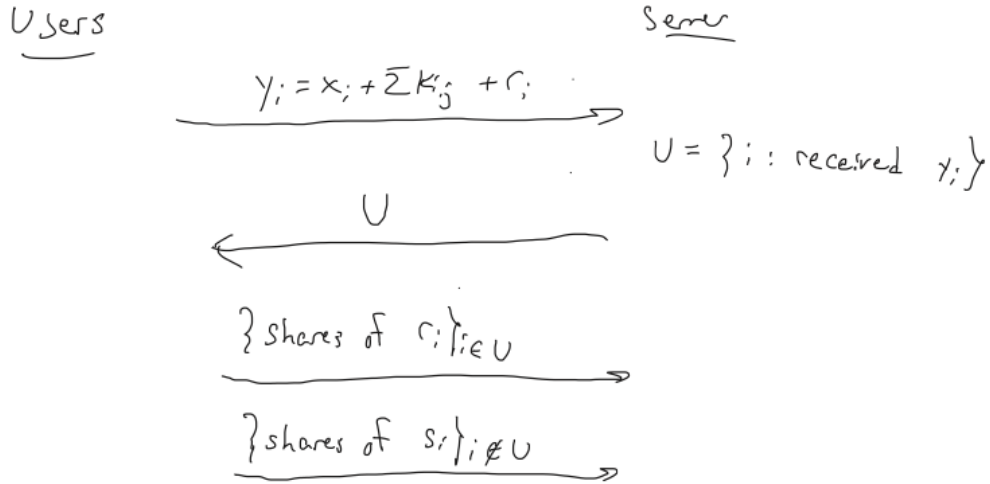 Users
Server
yᵢ = xᵢ + Σ kᵢⱼ + rᵢ
U = {i : received yᵢ}
U
{shares of rᵢ}ᵢ∈U
{shares of sᵢ}ᵢ∉U